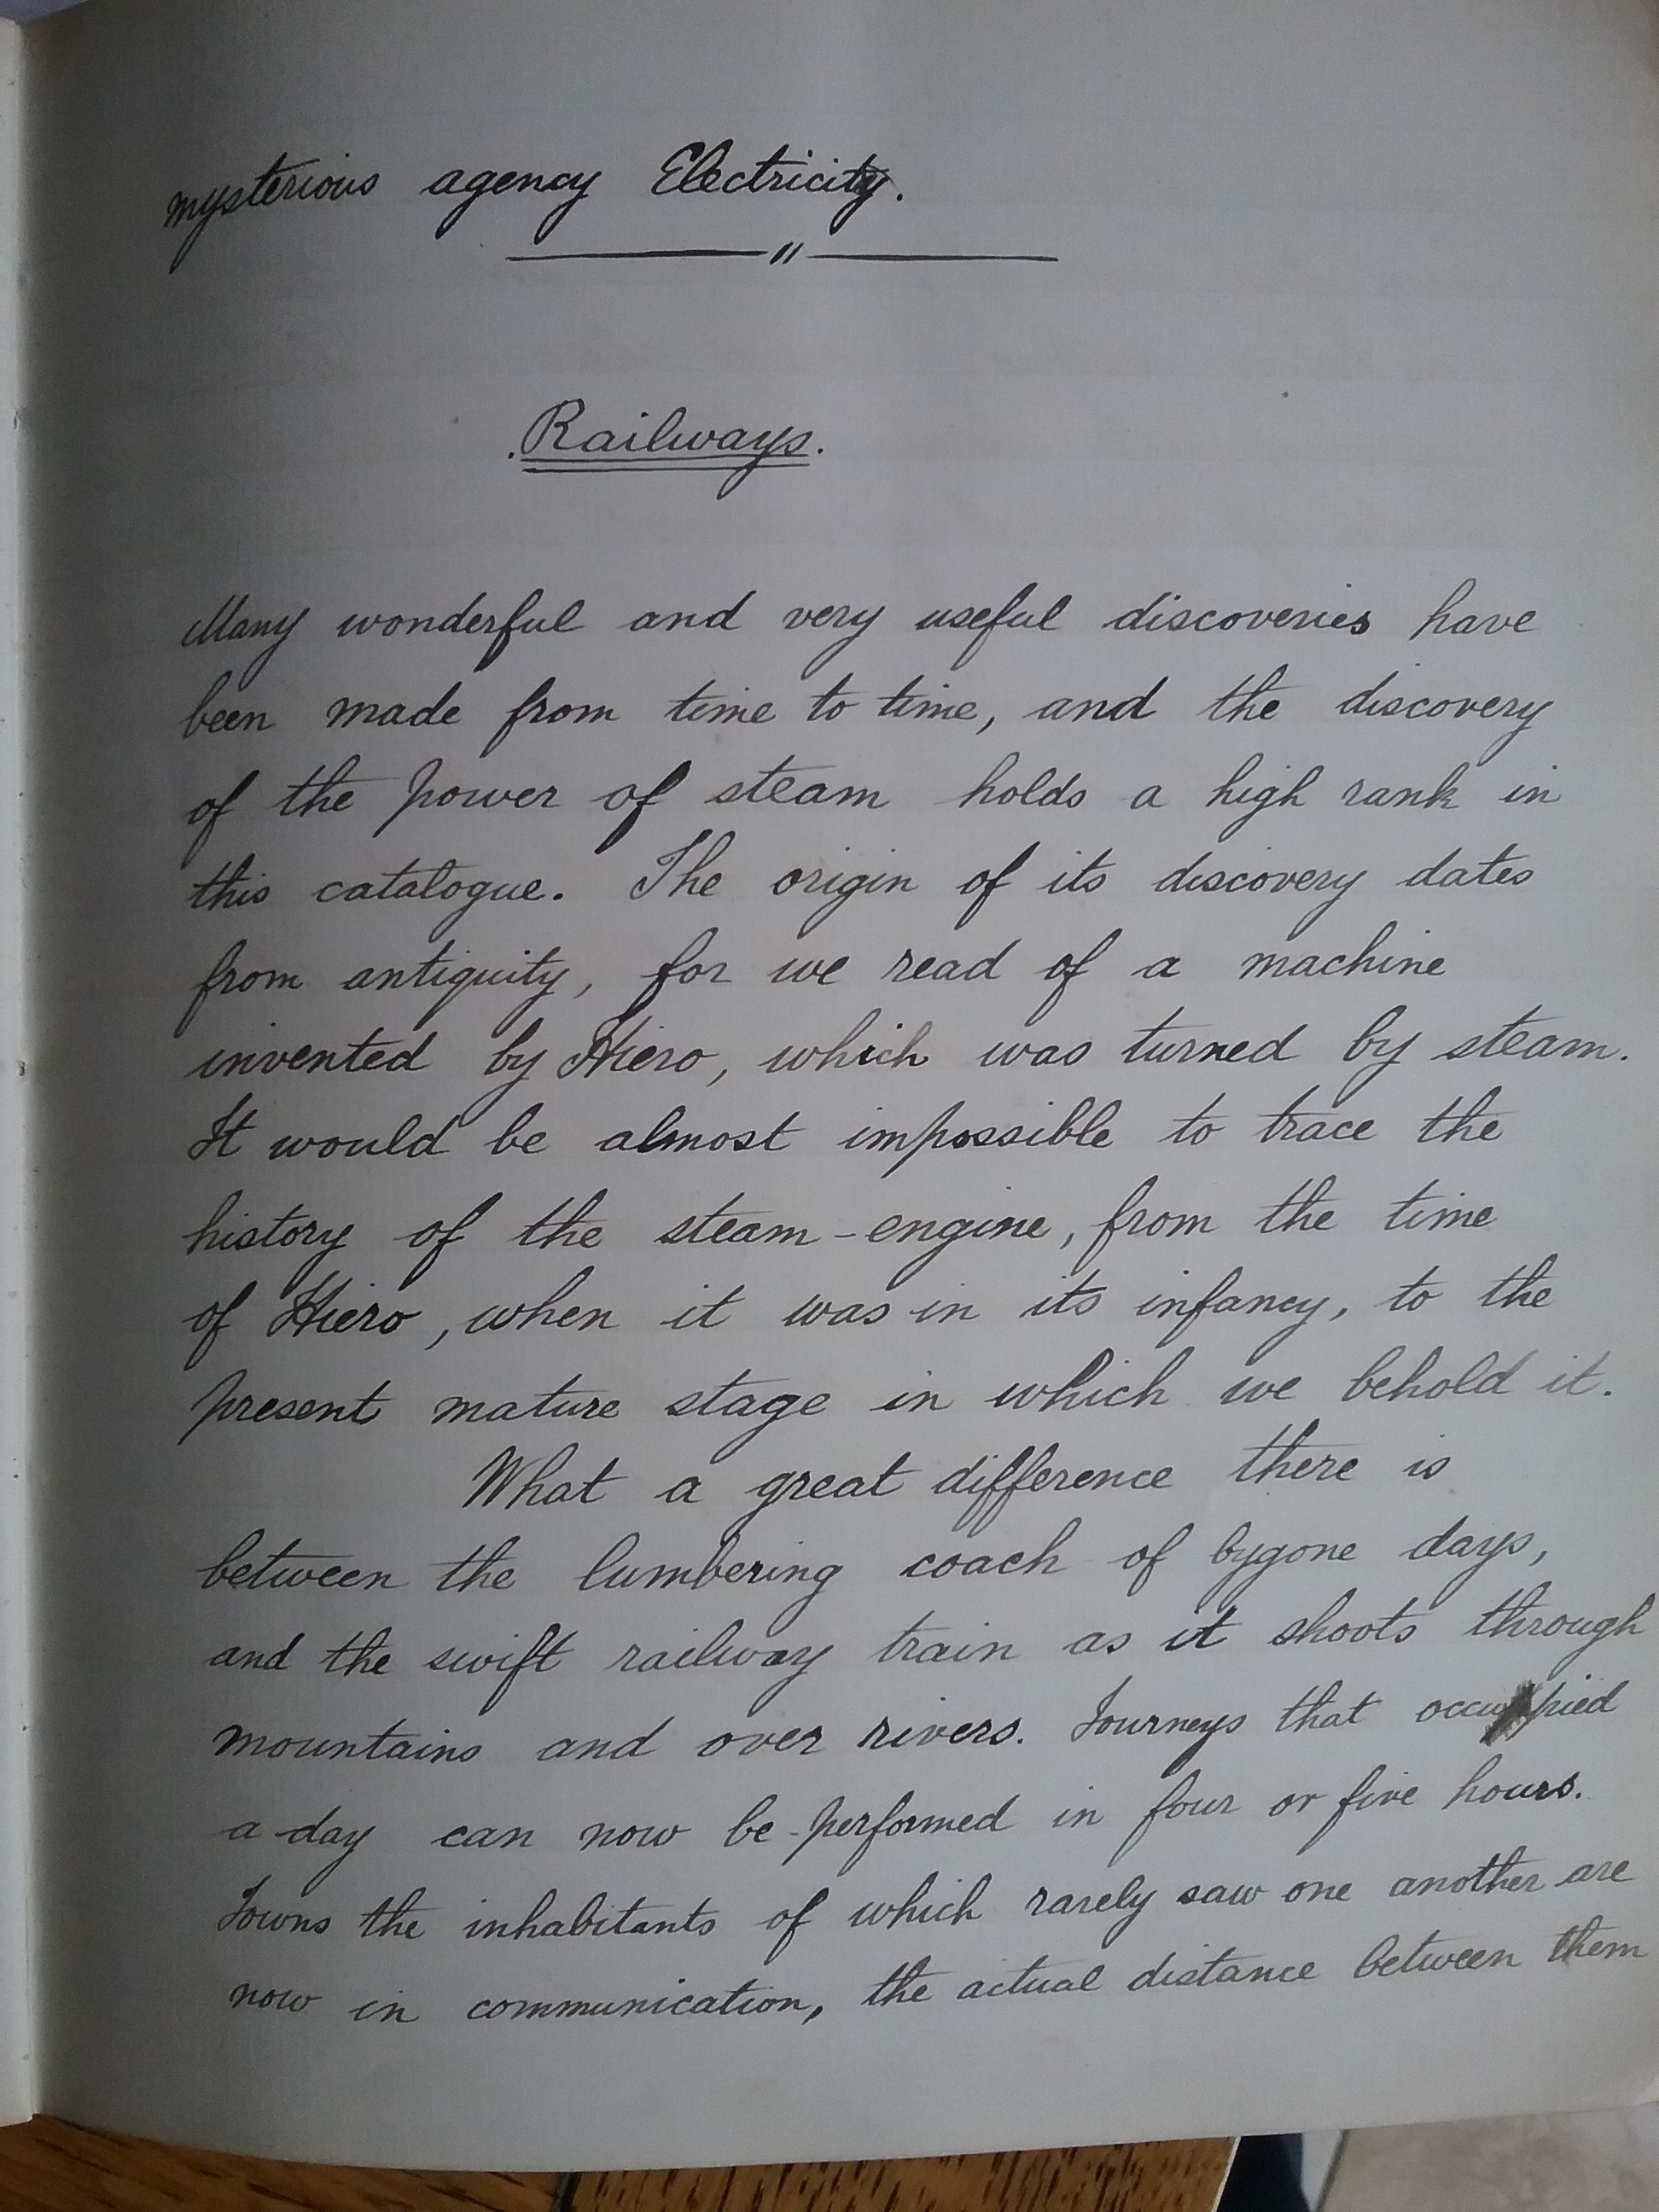 mysterious agency Electricity.
Railways.
Many wonderful and very useful discoveries have
been made from time to time, and the discovery
of the power of steam holds a high rank in
this catalogue. The origin of its discovery dates
from antiquity, for we read of a machine
invented by Hiero, which was turned by steam.
It would be almost impossible to trace the
history of the steam-engine, from the time
of Hiero, when it was in its infancy, to the
present mature stage in which we behold it.
What a great difference there is
between the lumbering coach of bygone days,
and the swift railway train as it shoots through
mountains and over rivers. Journeys that occupied
a day can now be performed in four or five hours.
Towns the inhabitants of which rarely saw one another are
now in communication, the actual distance between them